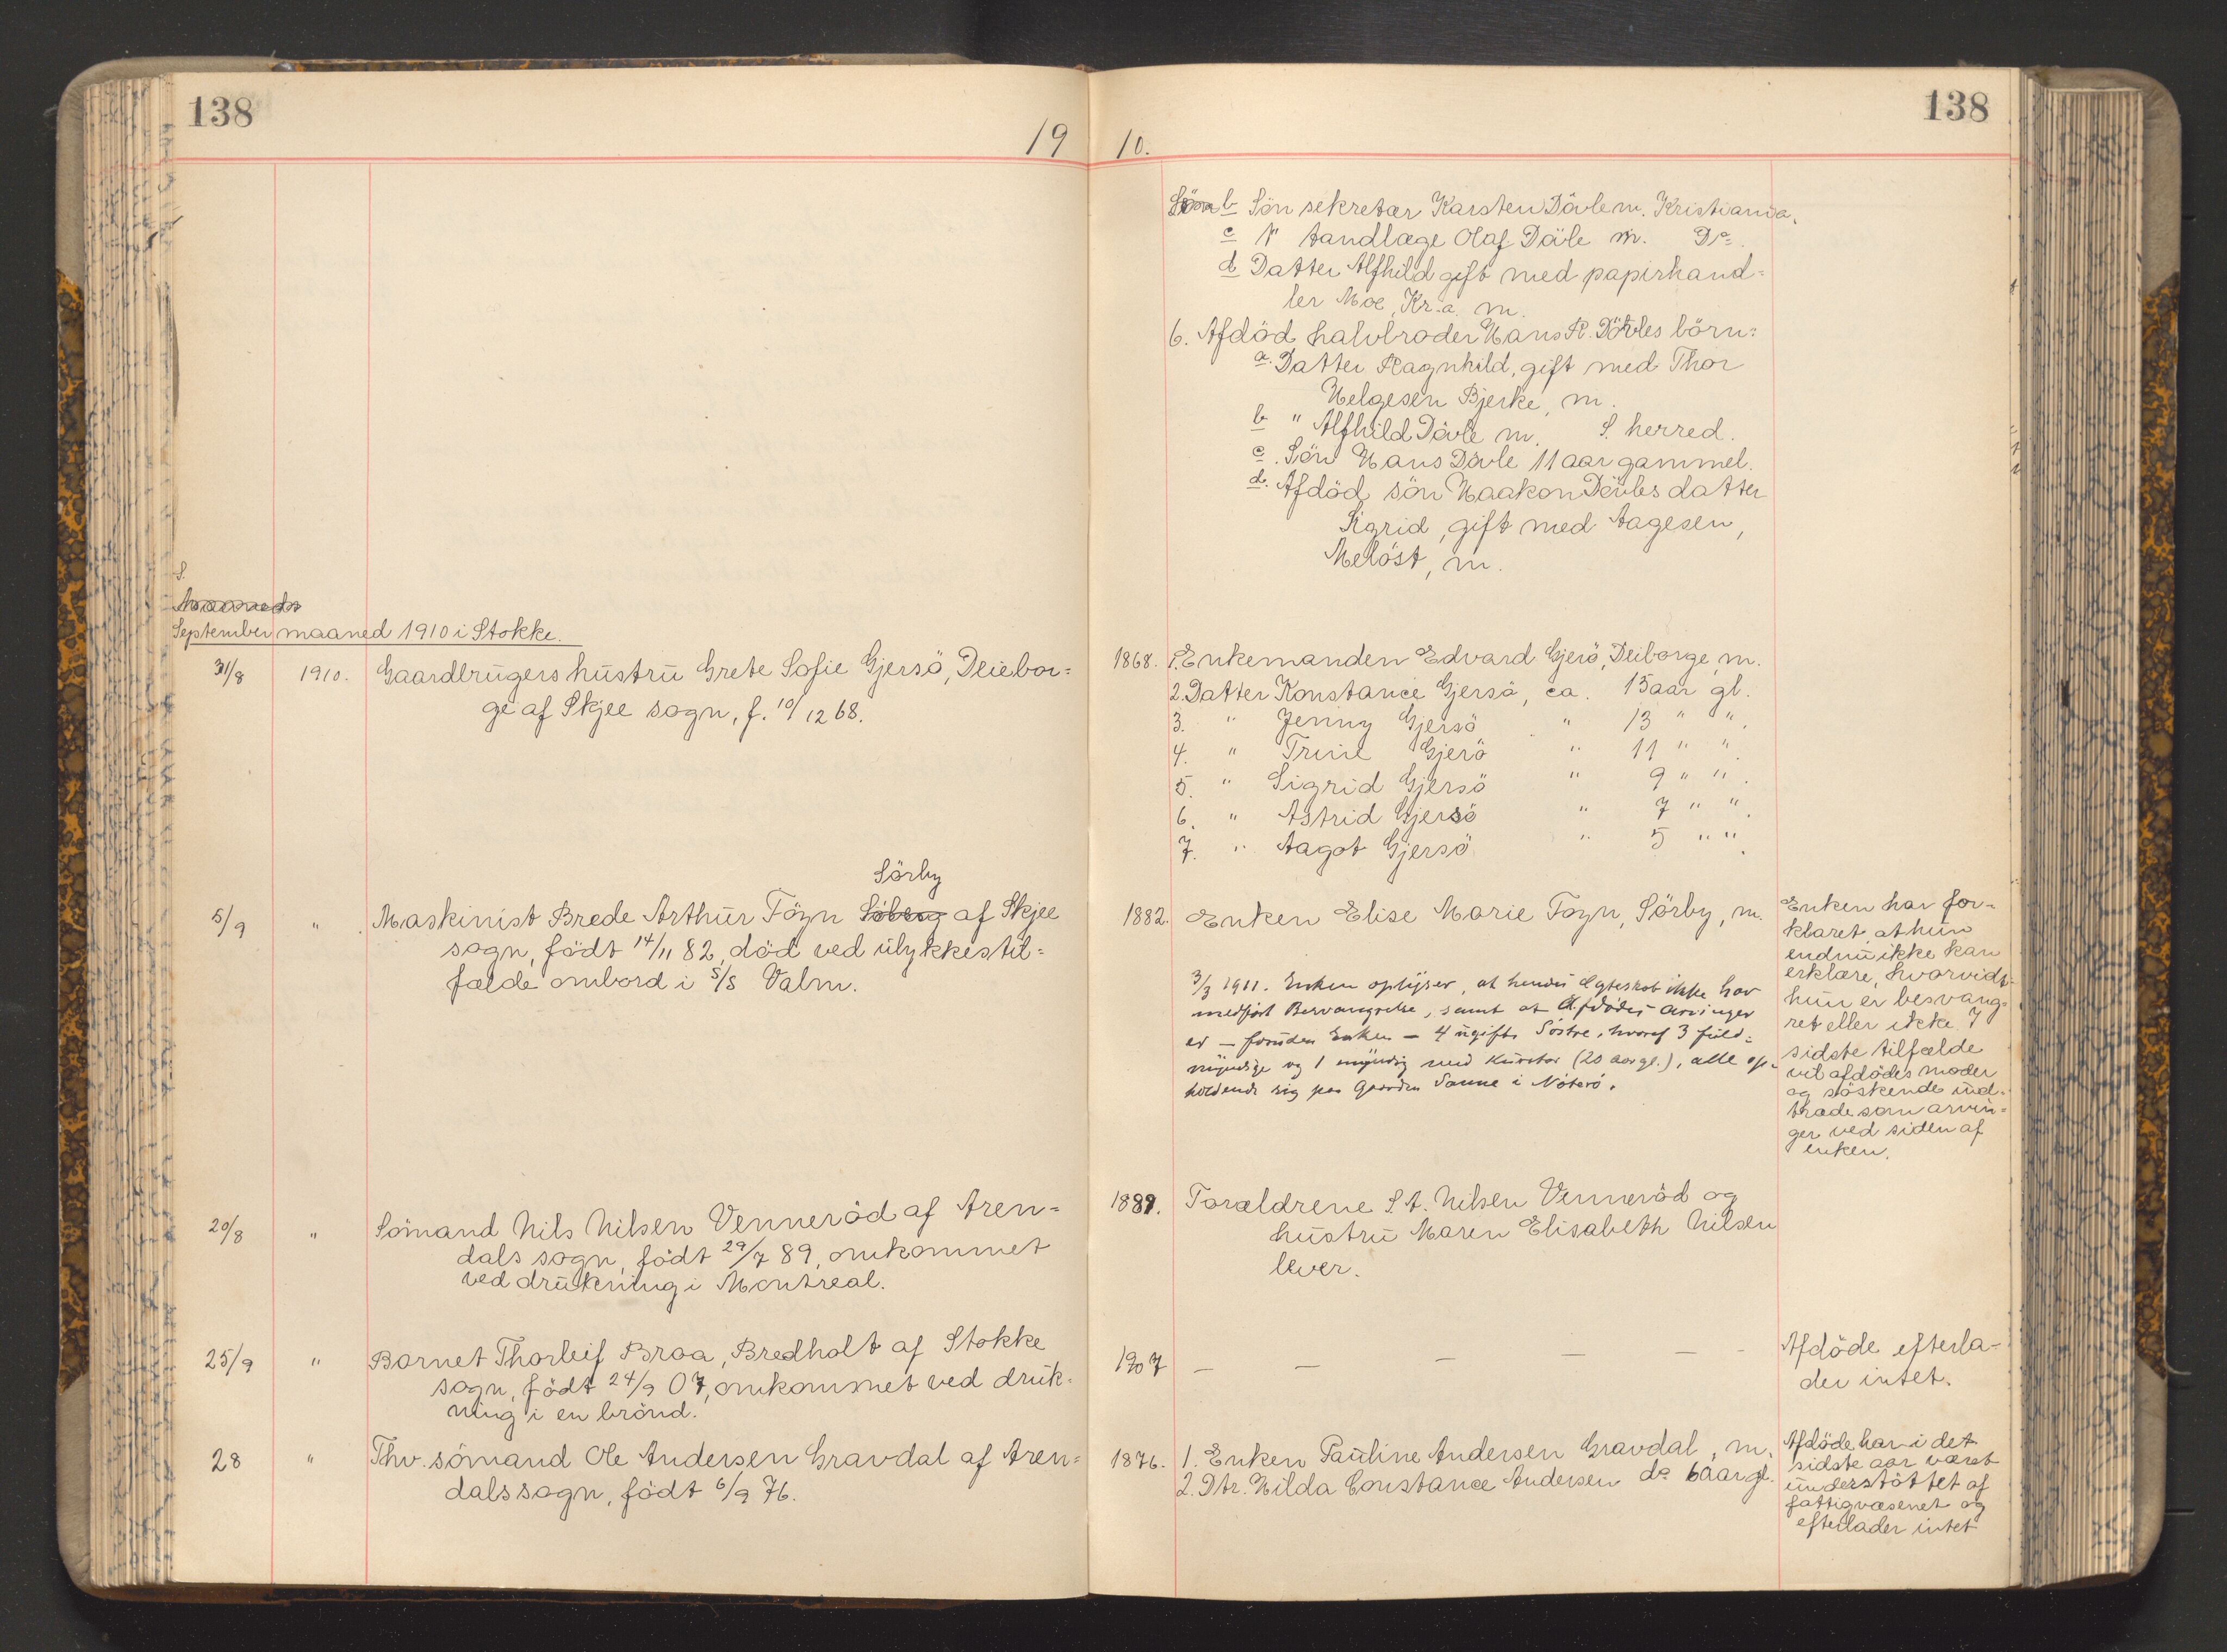 138
138
19 10.
b Sön sekretær Karsten Dävle m. Kristiania.
c " tandlæge Olaf Dävle m. Do
d Datter Alfhild gift med papirhand=
ler Moe, Kr.a. m.
6. Afdöd halvbroder Hans R. Dävles börn:
a. Datter Ragnhild, gift med Thor
Helgesen Bjerke, m.
b " Alfhild Dävle m. S. herred.
c. Sön Hans Dävle 11 aar gammel.
d. Afdöd sön Haakon Dävles datter
Sigrid, gift med Aagesen,
Melöst, m.
S.
September maaned 1910 i Stokke.
31/8 1910. Gaardbrugers hustru Grete Sofie Gjersö, Deiebor=
ge af Skjee sogn, f. 10/12 68.
1868. 1. Enkemanden Edvard Gjersö, Deiborge, m.
2. Datter Konstance Gjersö, ca. 15 aar gl.
3. " Jenny Gjersö " 13 " "
4. " Trine Gjersö " 11 " "
5. " Sigrid Gjersö " 9 " "
6. " Astrid Gjersö " 7 " "
7. " Aagot Gjersö " 5 " "
Sörby
5/9 " Maskinist Brede Arthur Föyn Söberg af Skjee
sogn, födt 14/11 82, död ved ulykkestil=
fælde ombord i S/S Valm.
1882. Enken Elise Marie Foyn, Sörby, m.
3/3 1911. Enken oplyser, at hendes Ægteskab ikke har
medført Besvangrelse, samt at Afdødes Arvinger
er – foruden Enken – 4 ugifte Søstre, hvoraf 3 fuld=
myndige og 1 myndig med Kurator (20 aar gl.), alle op-
holdende sig paa Gaarden Sanne i Nøterø.
Enken har for=
klaret, at hun
endnu ikke kan
erklære, hvorvidt
hun er besvang=
ret eller ikke. I
sidste tilfælde
vil afdödes moder
og söskende ind=
træde som arvin=
ger ved siden af
enken.
20/8 " Sömand Nils Nilsen Venneröd af Aren=
dals sogn, födt 29/7 89, omkommet
ved drukning i Montreal.
1889. Forældrene S. A. Nilsen Venneröd og
hustru Maren Elisabeth Nilsen
lever.
25/9 " Barnet Thorleif Braa, Bredholt af Stokke
sogn, födt 24/9 07, omkommet ved druk=
ning i en brönd.
1907 — — — — — -
Afdöde efterla-
der intet.
28 " Thv. sömand Ole Andersen Gravdal af Aren=
dals sogn, födt 6/9 76.
1876. 1. Enken Pauline Andersen Gravdal, m.
2. Dtr. Hilda Constance Andersen do 6 aar gl.
Afdöde har i det
sidste aar været
understöttet af
fattigvæsenet og
efterlader intet